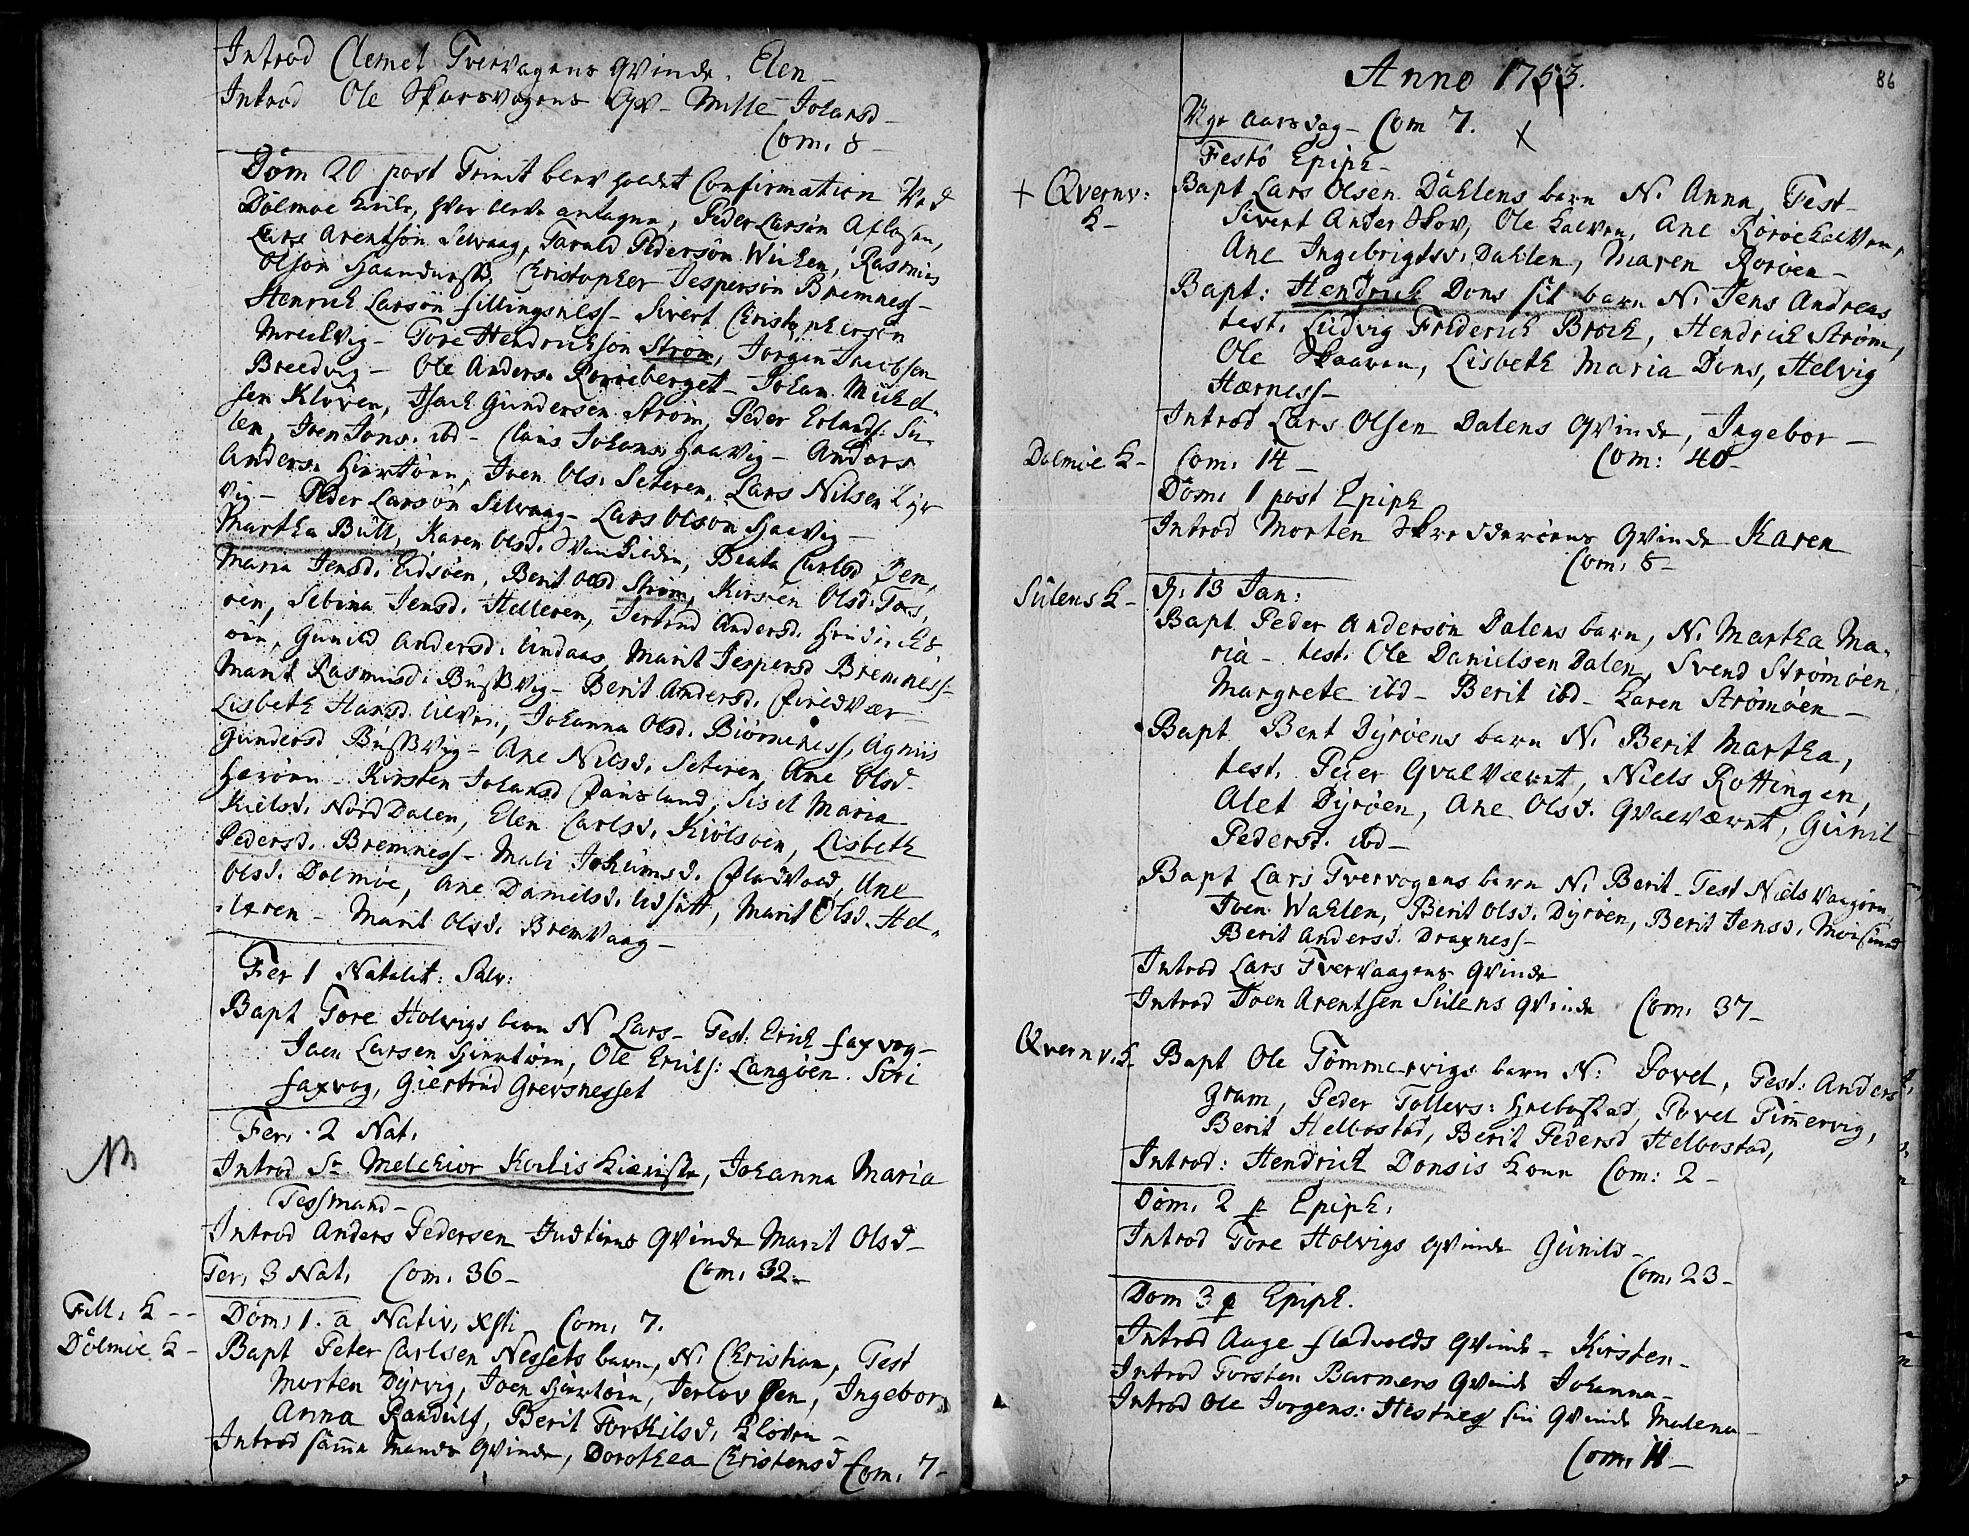 Introd Clemet Tvervagens qvinde. Elen –
Introd Ole Skarsvogens Qv – Mille Johansd –
Com. 8 –
Dom 20 post Trinit blev holdet Confirmation Ved
Dolmøe Kirke, hvor bleve antagne, Peder Larsøn Aflagsen,
Lars Arentsøn Selvaag, Tarald Pedersøn Wichen, Rasmus
Olsøn Christopher Jespersøn Bremness –
Henrich Larsøn fillingsness – Sivert Christophersøn
Tore Hendrichson Strøm, Jørgen Jacobsen
Breedvig – Ole Anders. Rorvieberget – Johan Michel-
sen Kløven, Isach Gundersen Strøm, Peder Erlands:
Iven Jons. ibd – Claus Johans. Haavig – Anders
Anders. Hiertøen, Iven Ols. Seteren, Lars Nilsen
vig – Peder Larsøn Selvaag – Lars Olsøn Haavig –
Martha Bull, Karen Olsd. Beata Carlsd Øen,
Maria Jensd. Eidsøen, Berit Olsd Strøm, Kirsten Olsd.
øen, Sebina Jensd. Helleren, Jertrud Andersd.
øen, Gunild Andersd. Undaas, Marit Jespersd Bremness –
Marit Rasmusd: Bussvig – Berit Andersd.
Lisbeth Hansd. Ulven, Johanna Olsd. Biørneness, Agnis
Gundersd Bussvig – Ane Nilsd. Seteren, Ane Olsd.
Herøen – Kirsten Johansd Sisel Maria
Kielsd. Nord Dalen, Elen Carlsd. Kiølsøen, Lisbeth
Pedersd. Bremness – Mali Jochumsd. Fladvold, Ane
Olsd. Dolmøe, Ane Danielsd. Udsætt, Marit Olsd. Hel-
leren – Marit Olsd. Bremvaag –
Fer 1 Natalit: Salv:
Bapt Tore Holvigs barn N Lars – Test: Erich faxvog –
Joen Larsen Hiertøen, Ole Erichs: Langøen. Siri
faxvog, Giertrud Grevsnesset
Fer. 2 Nat.
NB
Introd Sr Melchior Køelis Kiæreste, Johanna Maria
Tessmand –
Introd Anders Pedersen qvinde Marit Olsd –
Fer. 3 Nat. Com. 36 – Com. 32 –
Fill. K – – Dom. 1. a Nativ. Xsti Com. 7.
Dolmøe K – Bapt Peter Carlsen Nessets barn, N. Christian, Test
Morten Dyrvig, Joen Hiertøen, Jerlov Øen, Ingebor
Anna Randulf, Berit Torkilsd. Kløven –
Introd samme Mands Qvinde, Dorothea Christensd Com. 7 –
86
Anno 1753.
Nye aarsdag – Com 7. x
Festo Epiph –
+ Qvernv: K – Bapt Lars Olsen Dahlens barn N. Anna, Test –
Sivert Ander Skov, Ole Kalven, Ane Rorøe Kalven,
Ane Ingebrigtsd. Dahlen, Maren Rorøen –
Bapt: Hendrich Dons sit barn N. Jens Andreas
test. Ludvig Friderich Broch, Hendrich Strøm,
Ole Skaaven, Lisbeth Maria Dons, Helvig
Hærness –
Introd Lars Olsen Dalens Qvinde, Ingebor –
Dolmøe K – Com. 14 – Com: 40 –
Dom. 1 post Epiph
Introd Morten Skredderøens Qvinde Karen
Com. 5 –
Sulens K – D. 13 Jan:
Bapt Peder Andersøn Dalens barn, N. Martha Ma-
ria – test. Ole Danielsen Dalen, Svend Strømøen
Margrete ibd – Berit ibd – Karen Strømøen –
Bapt Bent Dyrøens barn N. Berit Martha,
test. Peter Qvalværet, Niels Rottingen,
Alet Dyrøen, Ane Olsd. Qvalværet, Gunil
Pedersd. ibd –
Bapt Lars Tvervogens barn N. Berit – Test Niels Vaagøen,
Iven Wahlen, Berit Olsd. Dyrøen, Berit Jensd. Morsund
Berit Andersd. Draxness –
Introd Lars Tvervaagens qvinde
Introd Joen Arentsen Sulens qvinde Com. 37 –
Qvernv. K. Bapt Ole Tømmervigs barn N: Povel, Test: Anders
gram, Peder Tollevs: Helbostad, Povel Timervig,
Berit Helbostad, Berit Pedersd Helbostad,
Introd: Hendrich Donsis Kone Com: 2 –
Dom. 2 p Epiph.
Introd Tore Holvigs qvinde Gunild –
Com. 23 –
Dom 3 p Epiph.
Introd Aage fladvolds Qvinde – Kirsten –
Introd Torsten Barmens Qvinde Johanna –
Introd Ole Jorgens: Hestnes sin Qvinde Malena –
Com. 11 –